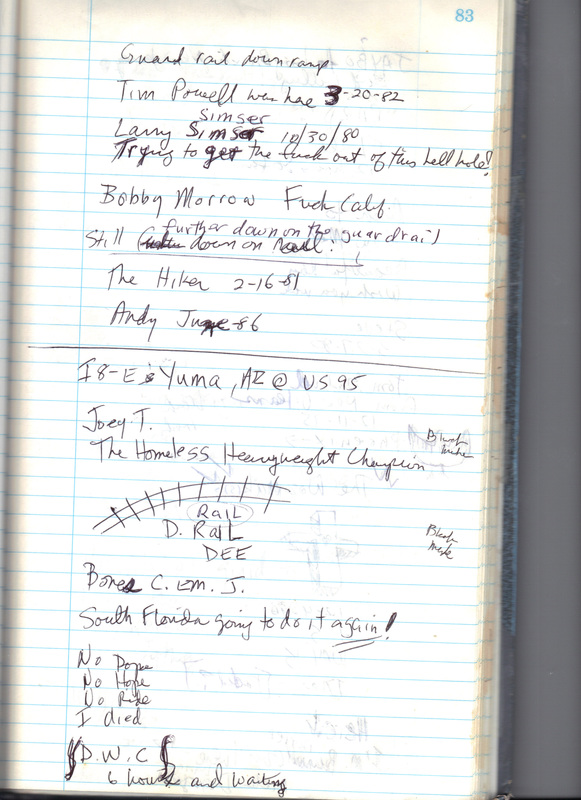 83
Guard rail down ramp
Tim Powell was here 3-20-82
Simser
Larry Simser 10/30/80
Trying to get the fuck out of this hell hole!
Bobby Morrow Fuck Calif.
further down on the guardrail
Still down on
The Hiker 2-16-81
Andy June 86
I8-E Yuma, AZ @ US 95
Joey T.
The Homeless Heavyweight Champion
Black
RAIL
D. RAIL
DEE
Black
Bones C. EM. J.
South Florida going to do it again!
No Dope
No Hope
No Ride
I died
D.W.C
6 hours and waiting